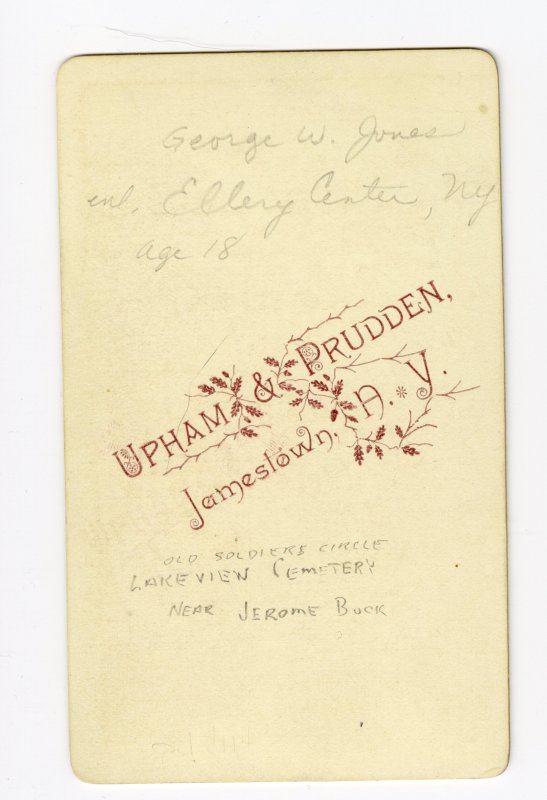 George W. Jones
enl. Ellery Center, Ny
age 18
UPHAM & PRUDDEN,
Jamestown, N. Y.
OLD SOLDIERS CIRCLE
LAKEVIEW CEMETERY
NEAR JEROME BUCK